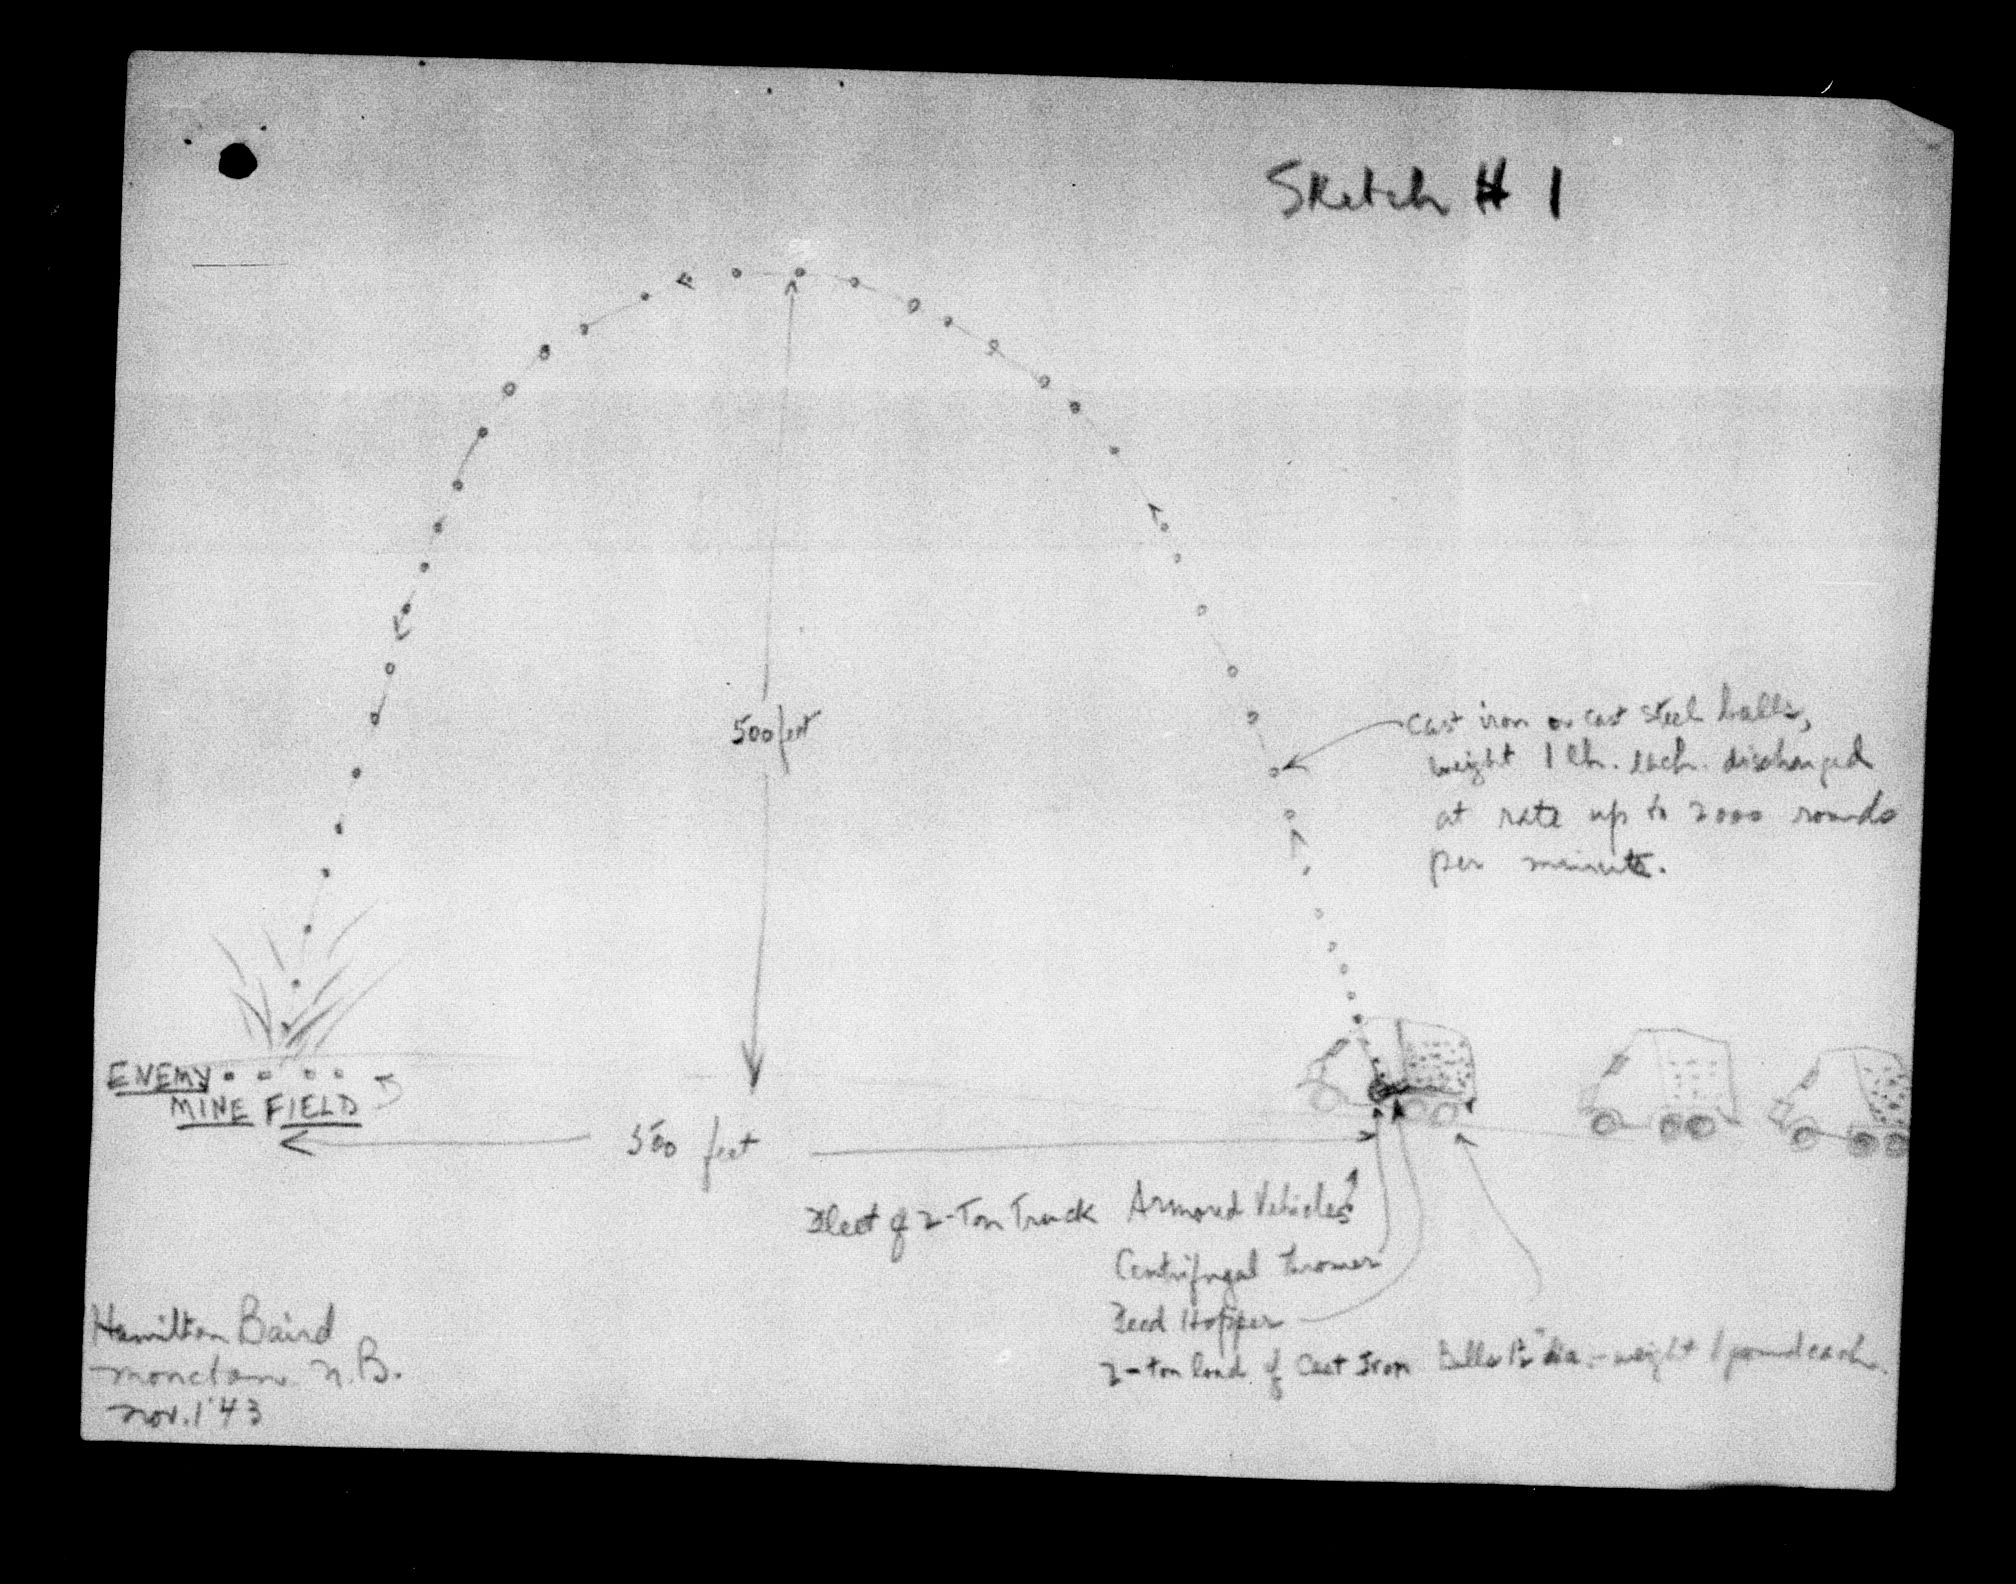 Sketch # 1
500 feet
cast iron or cast steel balls,
weight 1 lb. each. discharged
at rate up to 2000 rounds
per minute.
ENEMY
MINE FIELD
500 feet
Fleet of 2-Ton Truck Armored Vehicles
Centrifugal Thrower
Feed Hopper
2-ton load of Cast Iron Balls dia.-weight 1 pound each.
Hamilton Baird
Moncton N.B.
Nov. 1 '43